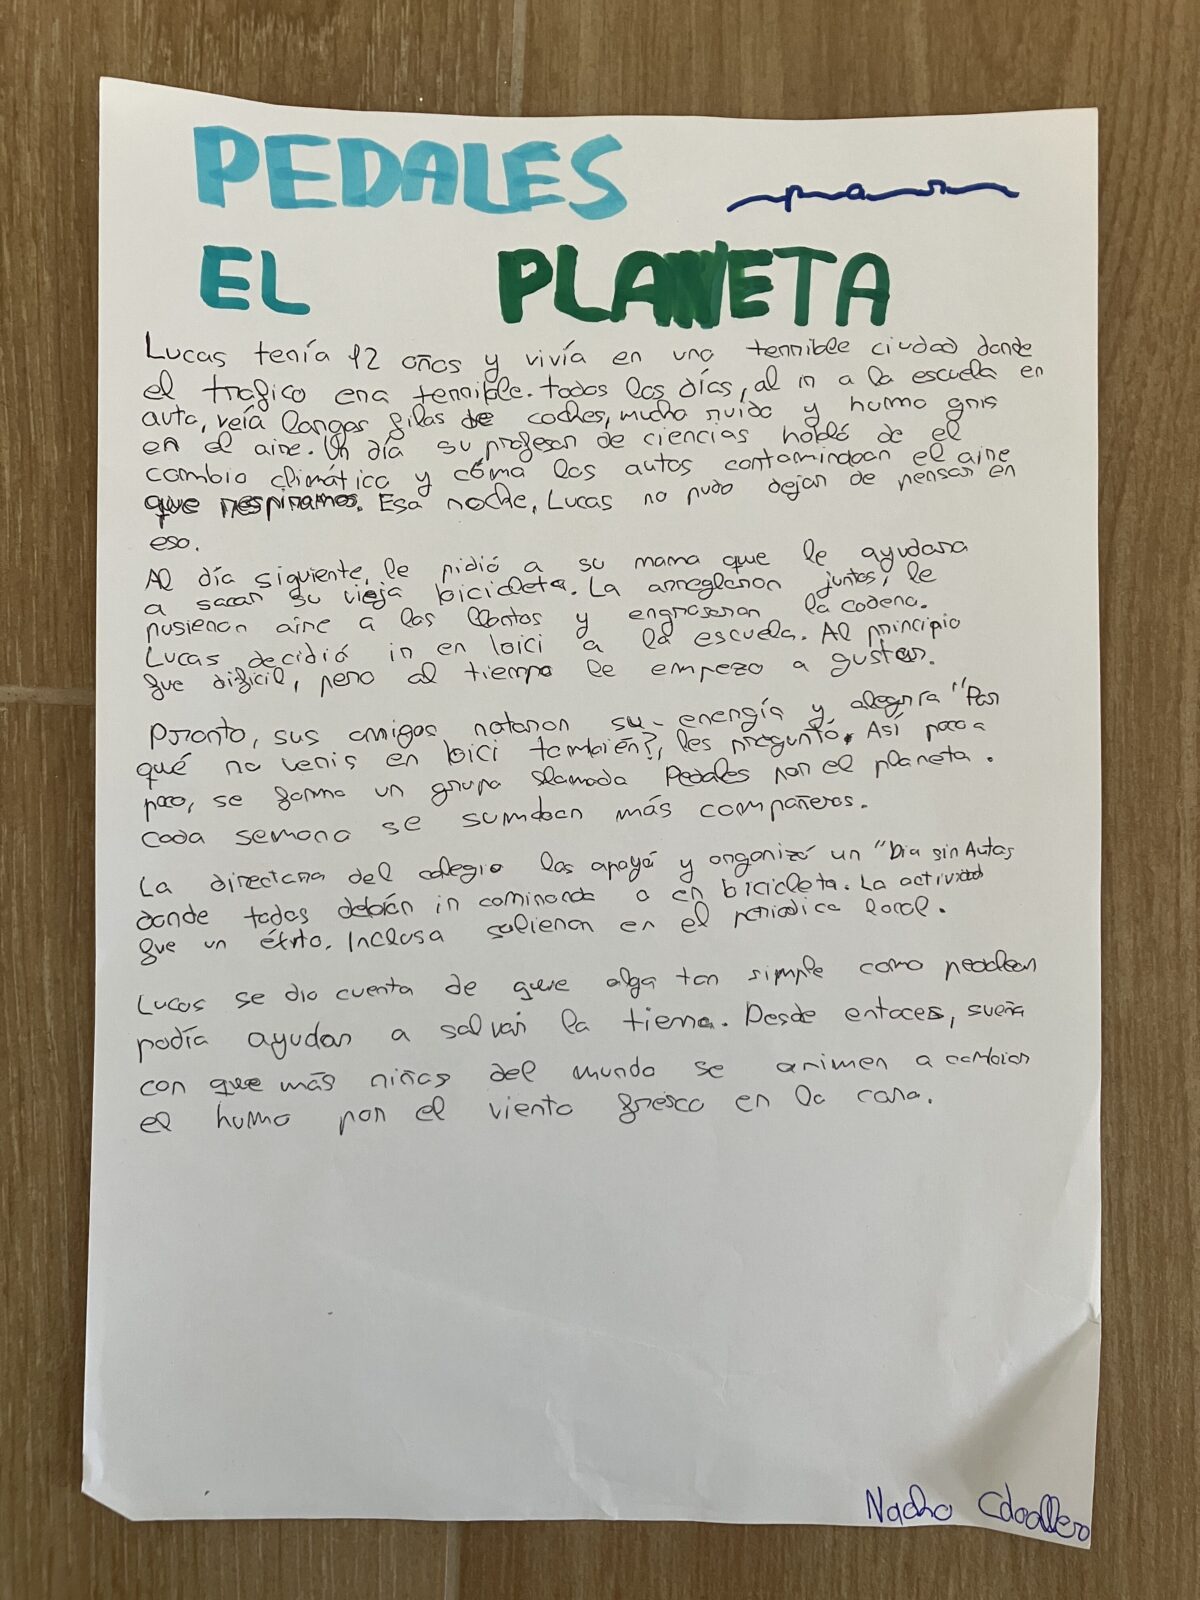 PEDALES por
EL PLANETA
Lucas tenía 12 años y vivía en una terrible ciudad donde
el trafico era terrible. todos los días, al ir a la escuela en
auto, veía largas filas de coches, mucho ruido y humo gris
en el aire. Un día su profesor de ciencias habló de el
cambio climático y cómo los autos contaminaban el aire
que respiramos. Esa noche, Lucas no pudo dejar de pensar en
eso.
Al día siguiente, le pidió a su mama que le ayudara
a sacar su vieja bicicleta. La arreglaron juntos, le
pusieron aire a las llantas y engrasaron la cadena.
Lucas decidió ir en bici a la escuela. Al principio
fue dificil, pero al tiempo le empezo a gustar.
Pronto, sus amigos notaron su energía y alegria "Por
qué no venis en bici también?, les preguntó. Así poco a
poco, se formo un grupo llamado Pedales por el planeta.
Cada semana se sumaban más compañeros.
La directora del colegio los apoyó y organizó un "Dia sin Autos
donde todos debían ir caminando o en bicicleta. La actividad
fue un éxito. Incluso salieron en el periodico local.
Lucas se dio cuenta de que algo tan simple como pedalear
podía ayudar a salvar la tierra. Desde entoces, sueña
con que más niños del mundo se animen a cambiar
el humo por el viento fresco en la cara.
Nacho Caballero